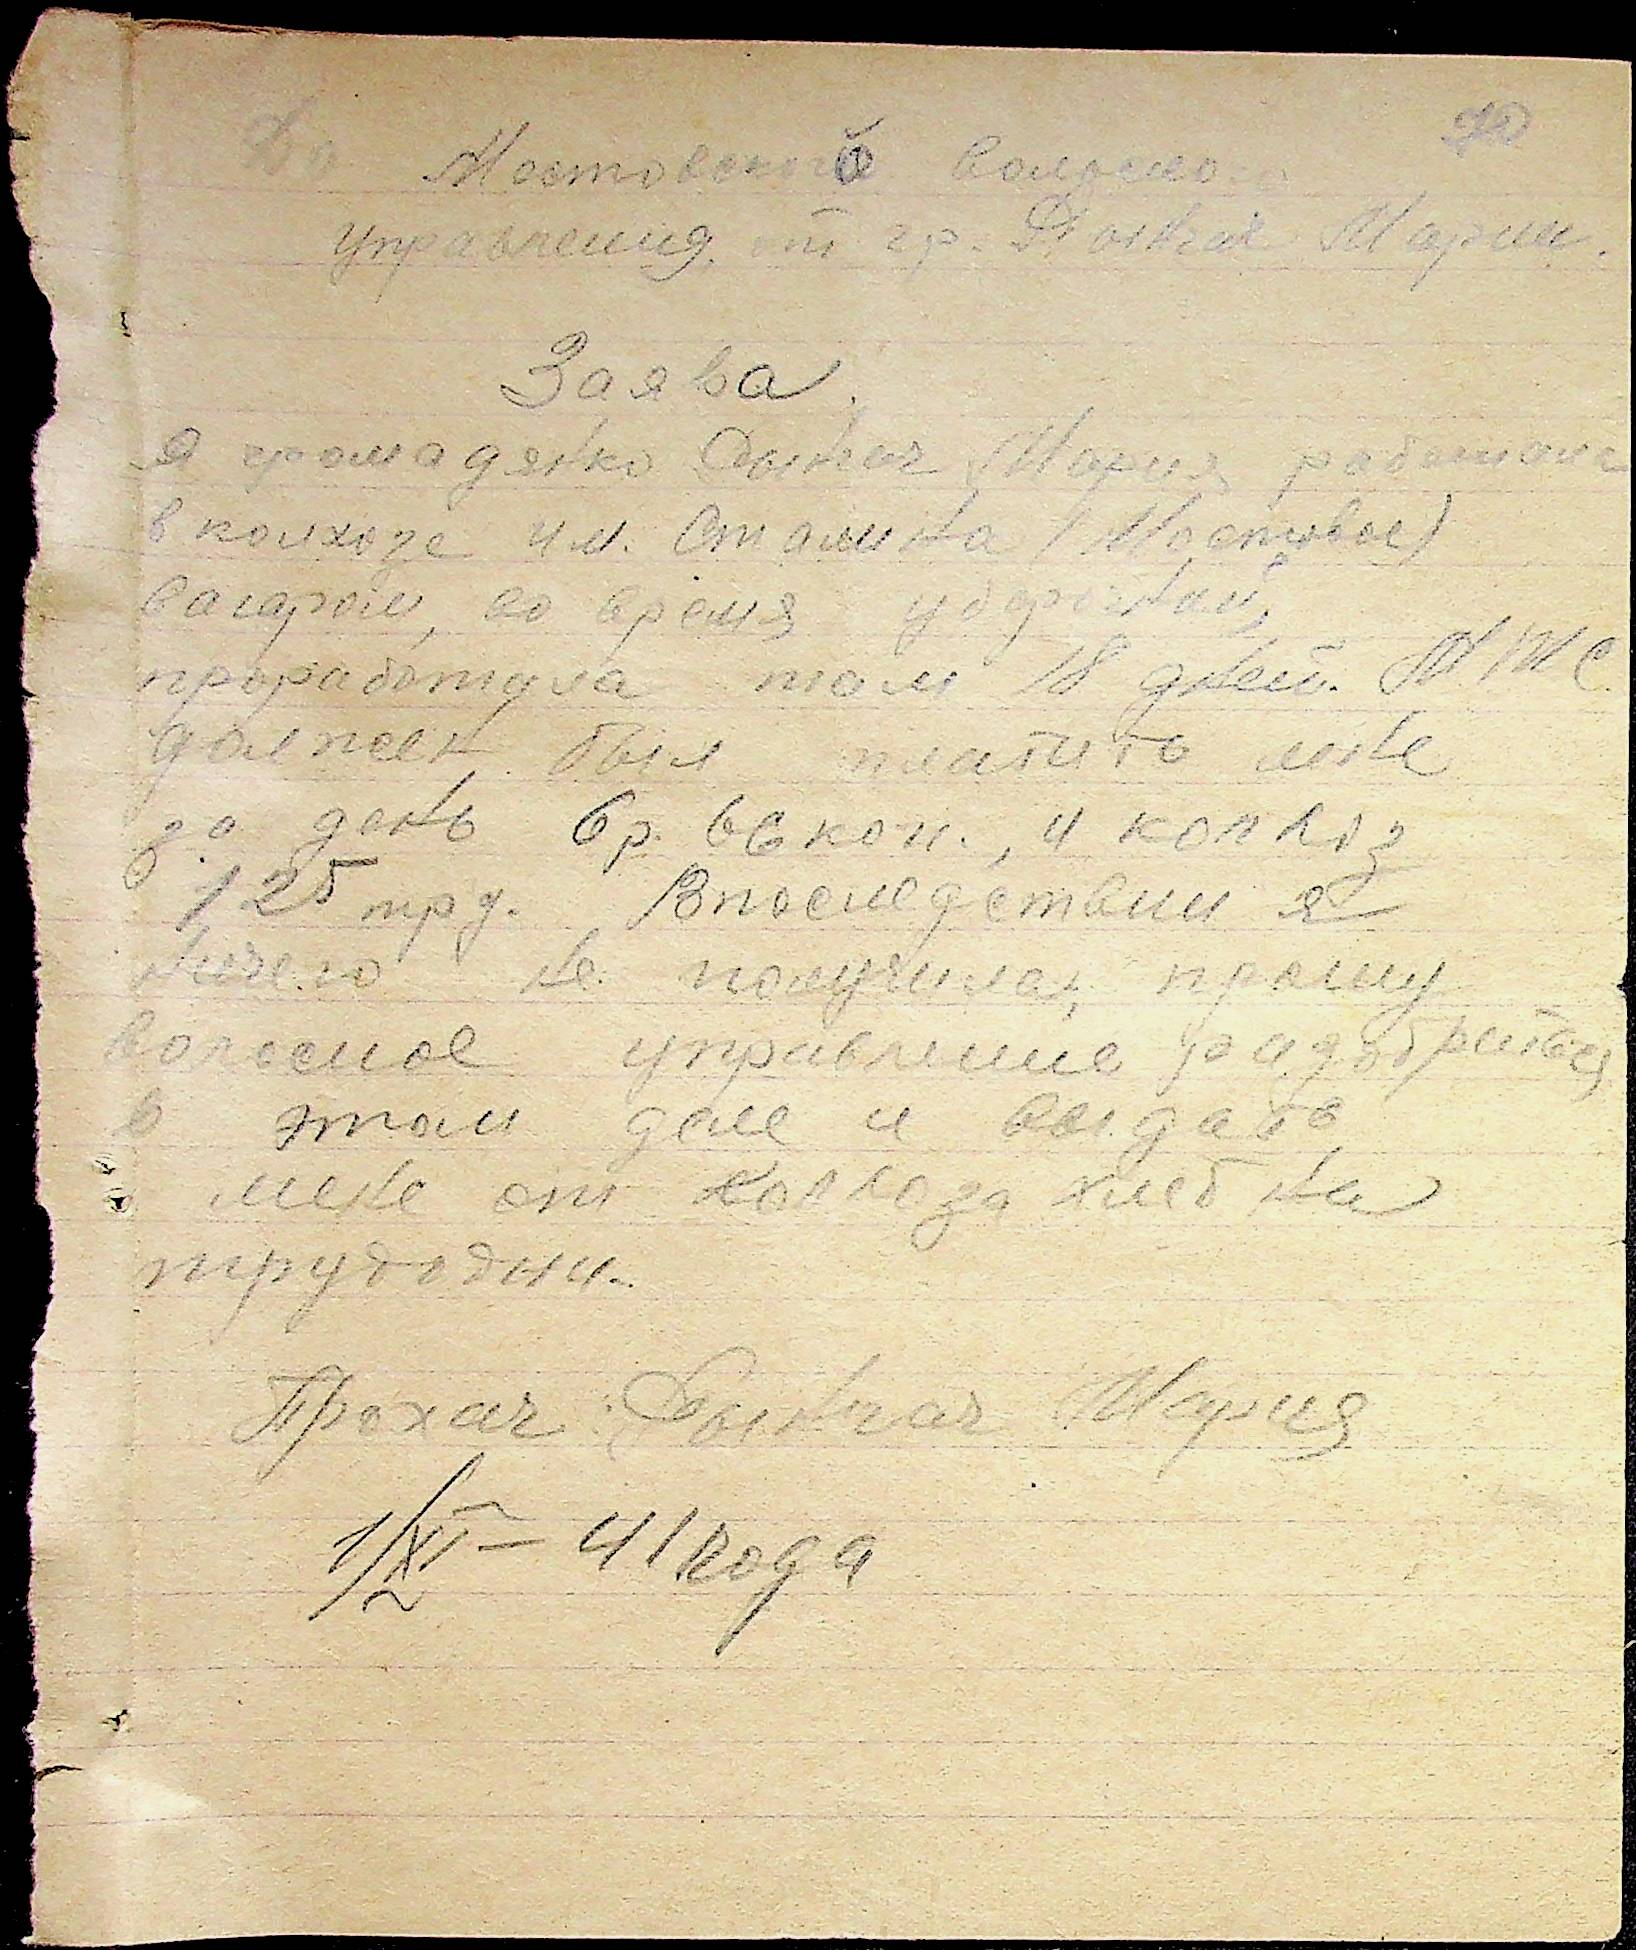 До Мостовского волосного
управления от гр. Дынкач Марии.
Заява.
Я громадянко Дынкач Мария, работала
в колхозе им. Сталина (Мостовое)
во время уборочной,
проработала там 18 дней. МТС
должен был платить мне
за день 6 р. 66 коп., и колхоз
1,25 трд. Впоследствии я
ничего не получила, прошу
волосное управление
в этом деле и выдать
мене от колхоза хлеб на
трудодни.
Прохач: Дынкач Мария
1/XI – 41 года